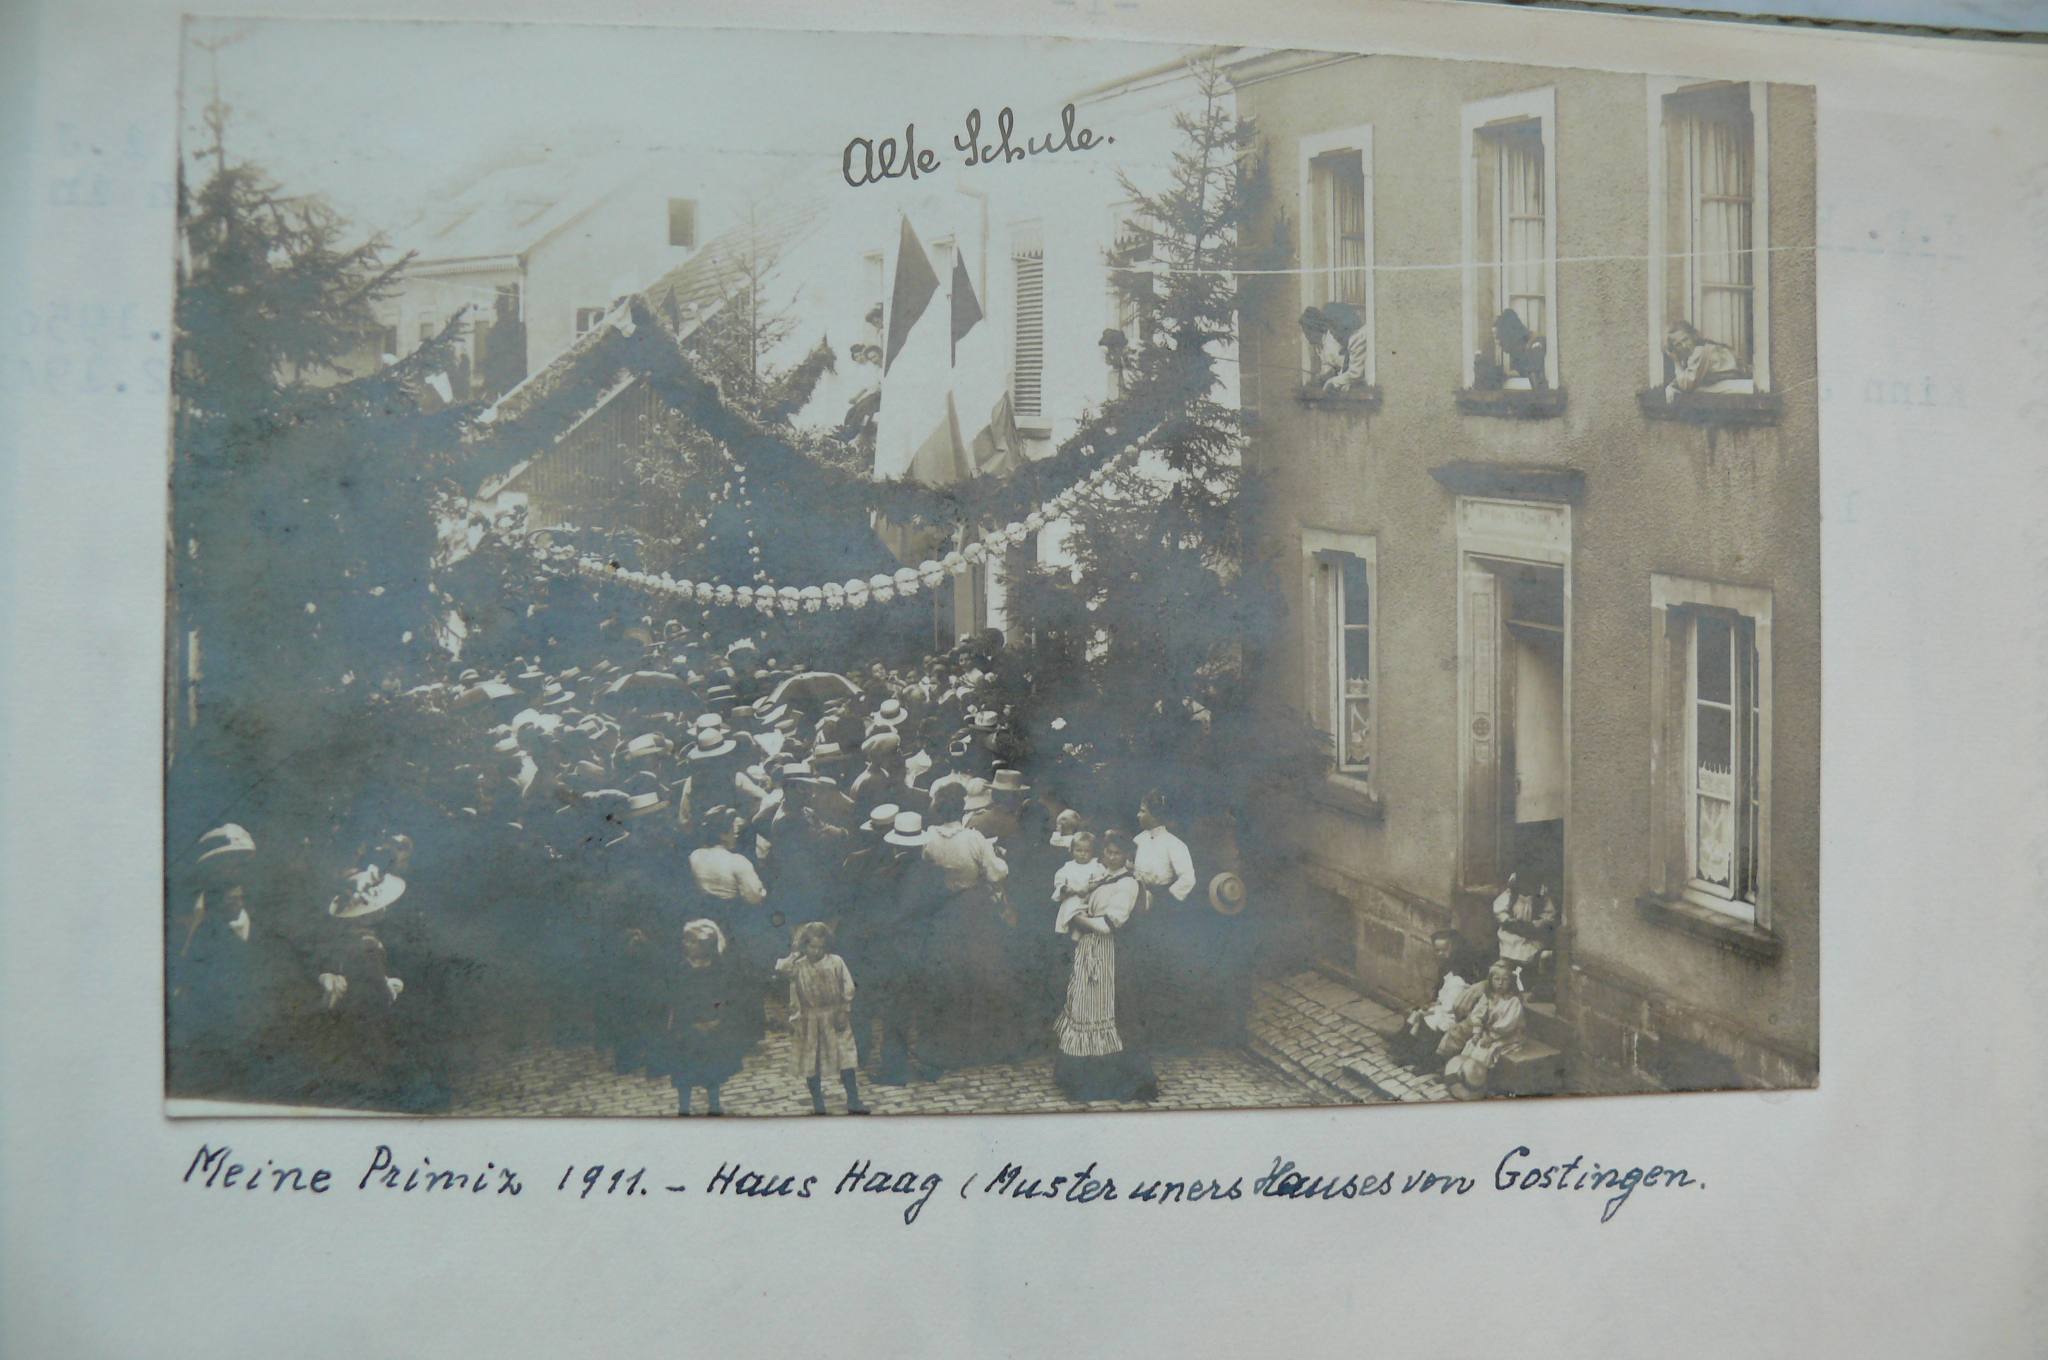 Alte Schule.
Meine Primiz 1911. - Haus Haag ( Muster uners Hauses von Gostingen.